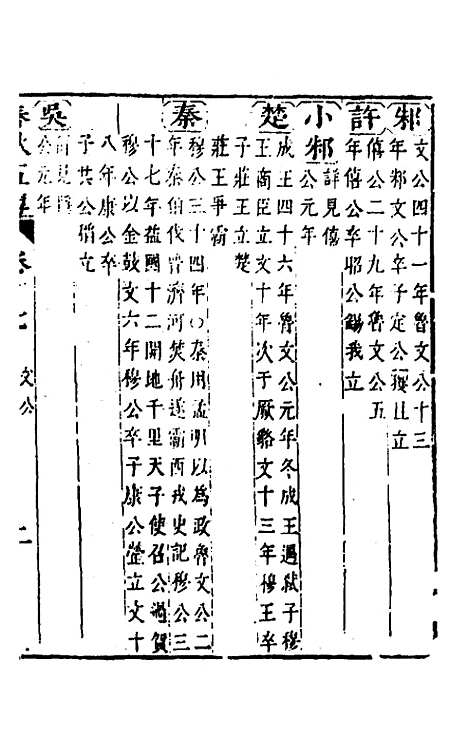 邾
文公四十一年魯文公十三
年邾文公卒子定公貜且立
許
僖公二十九年魯文公五
年僖公卒昭公錫我立
小邾
詳見僖
公元年
楚
成王四十六年魯文公元年冬成王遇弒子穆
王商臣立文十年次于厥貉文十三年穆王卒
子莊王立楚
莊王爭霸
秦
穆公三十四年○秦用孟明以為政魯文公二
年秦伯伐晉濟河焚舟遂霸西戎史記穆公三
十七年益國十二開地千里天子使召公過賀
穆公以金鼓文六年穆公卒子康公罃立文十
八年康公卒
子共公稻立
吳
公元年
卷十七 文公 二